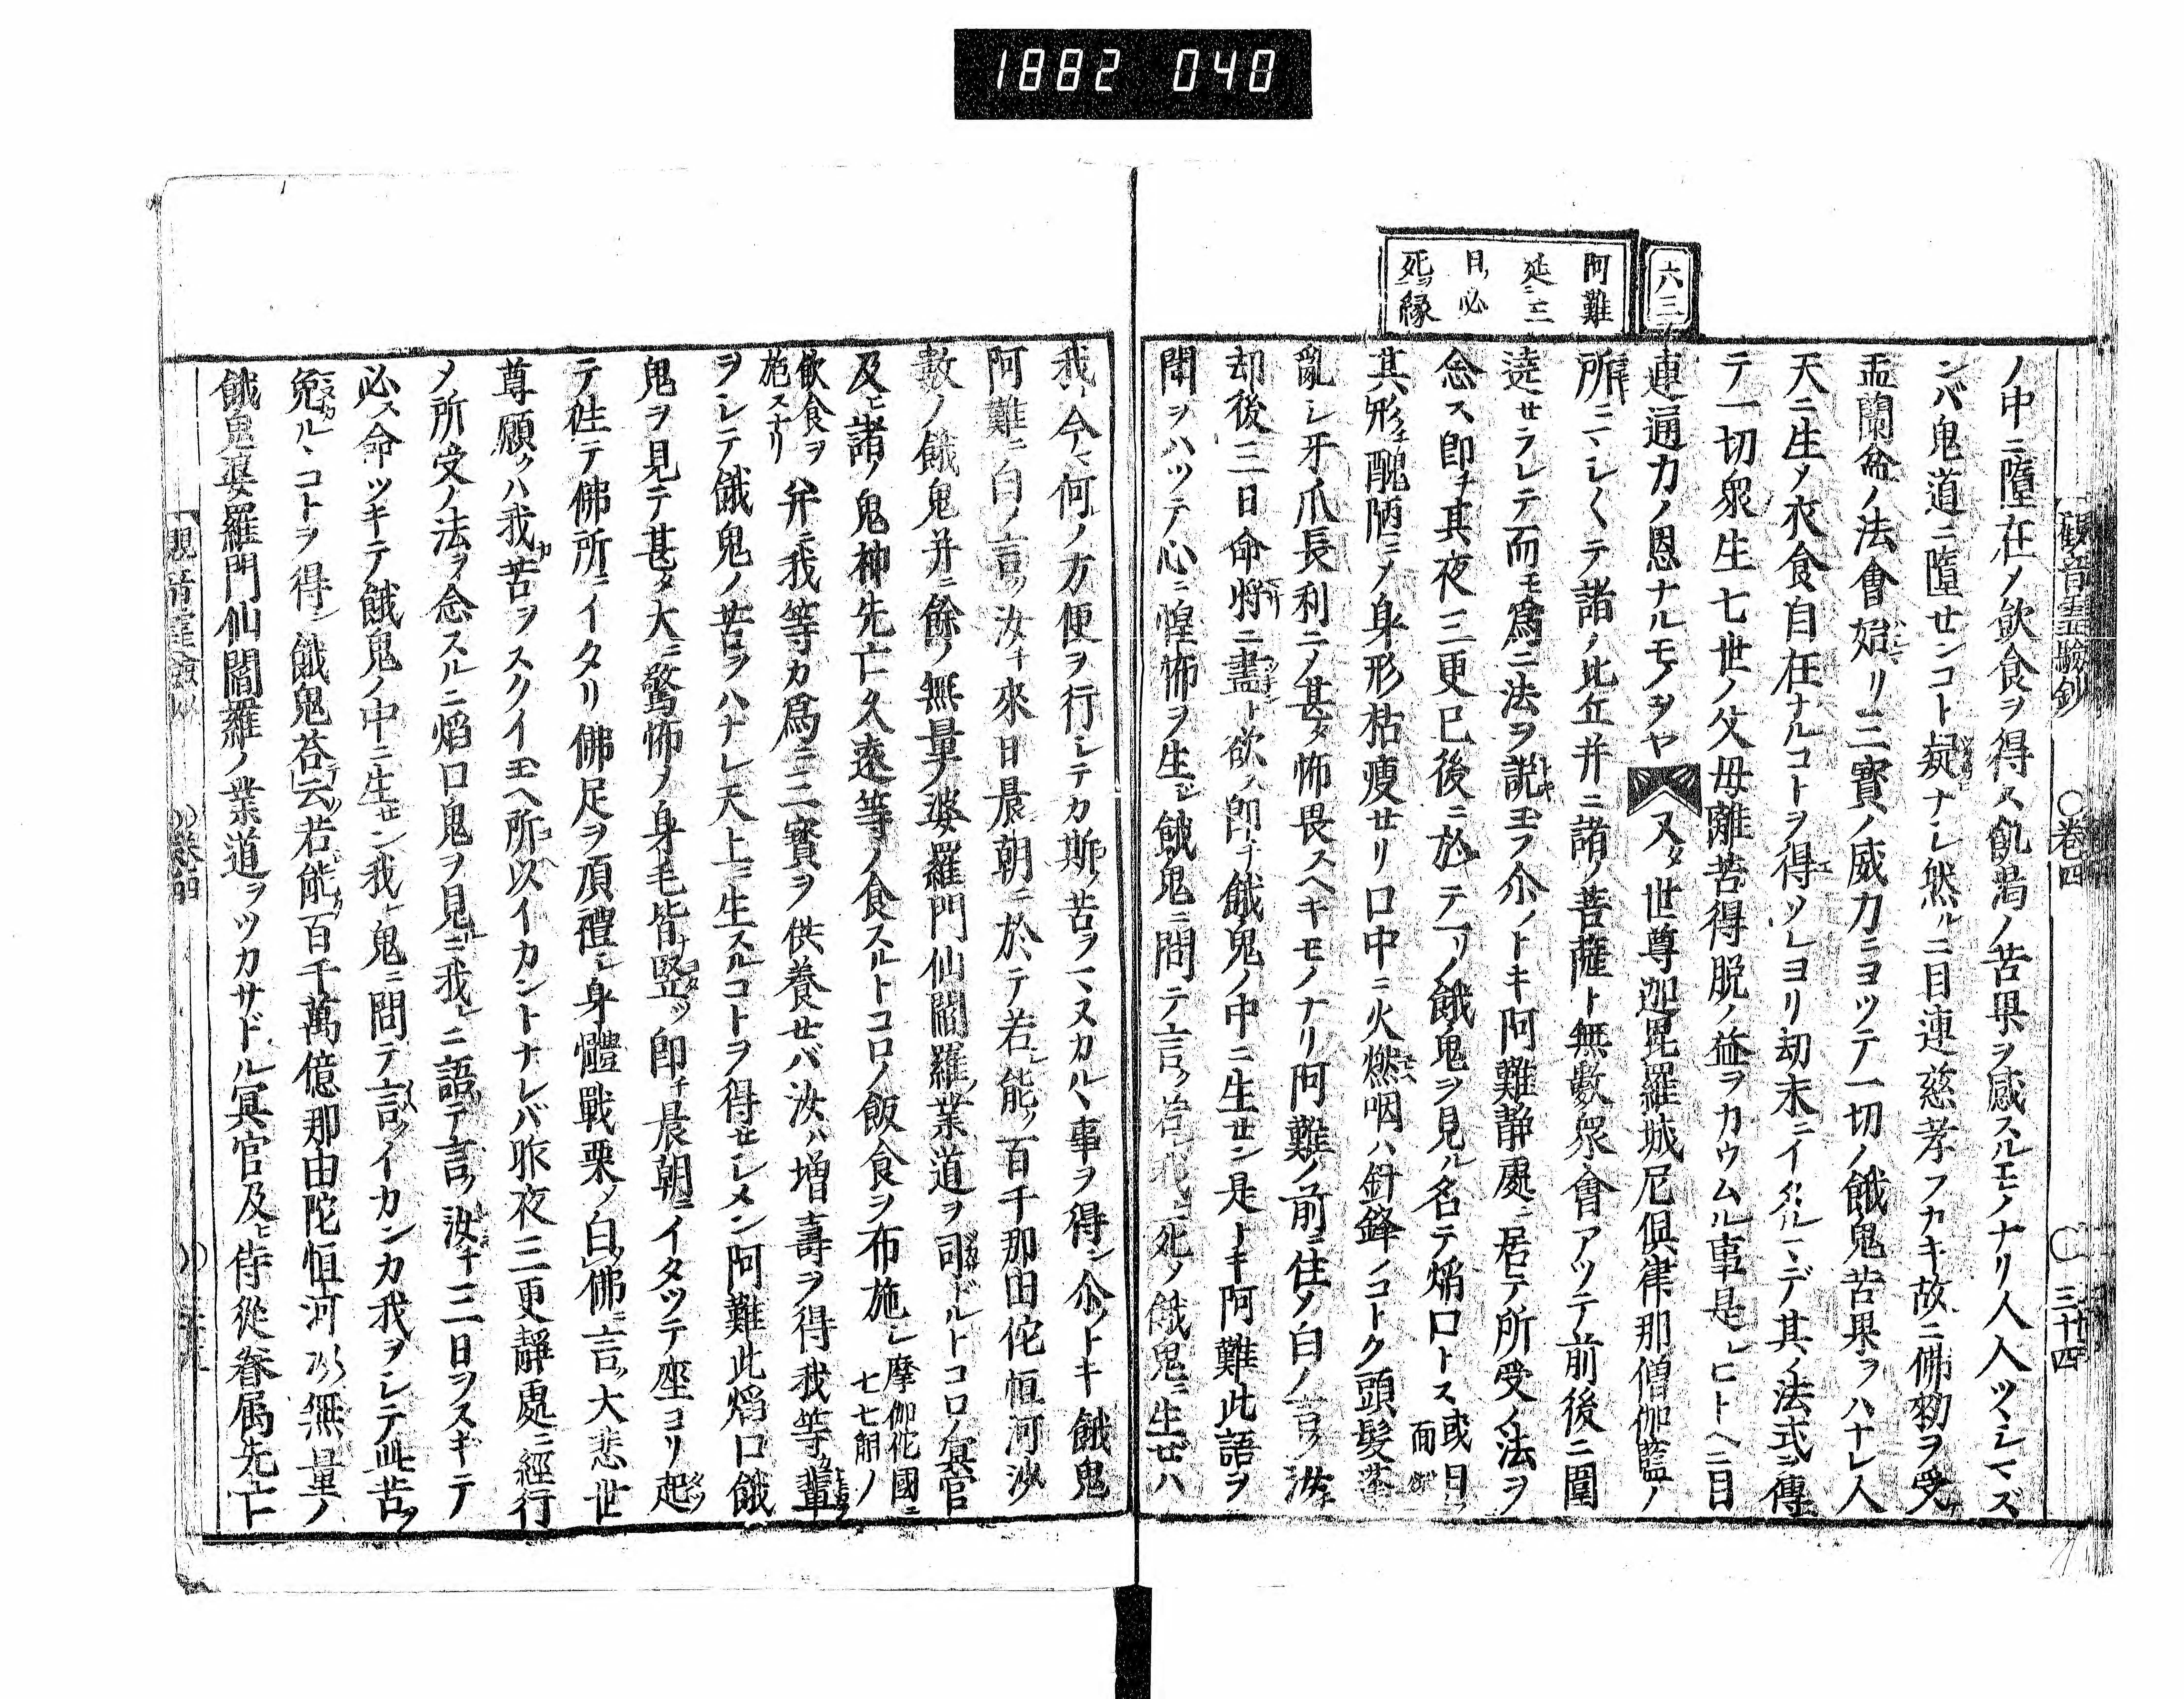 1882 040
觀音靈驗鈔 ○巻四 ○三十四
六三
阿難
延ニ三
日ノ必
死ヲ縁
ノ中ニ墮在メ飲食ヲ得ス飢渇ノ苦果ヲ感スルモノナリ人入ツレマズ
ンバ鬼道ニ墮センコト疑ナレ然ルニ目連慈孝フカキ故ニ佛勅ヲ受
盂蘭盆ノ法會始リ三寳ノ威力ニヨツテ一切ノ餓鬼苦果ヲハナレ人
天ニ生メ衣食自在ナルコトヲ得ソレヨリ劫末ニイタルマデ其ノ法式ヲ傳
テ一切衆生七世ノ父母離苦得脱ノ益ヲカウムル事是レヒトヘニ目
連通力ノ恩ナルモノヲヤ 又タ世尊迦毘羅城尼倶律那僧伽藍ノ
所ニマシ〱テ諸ノ比丘并ニ諸ノ菩薩ト無數衆會アツテ前後ニ圍
遶セラレテ而モ爲ニ法ヲ説玉フ尒ノトキ阿難靜處ニ居テ所受ノ法ヲ
念ス即チ其夜三更已後ニ於テ一リノ餓鬼ヲ見ル名テ焔口トス或曰面
其形チ醜陋ニメ身形枯痩セリ口中ニ火燃咽ハ針鋒ノコトク頭髮蓬
亂レ牙爪長利ニメ甚タ怖畏スヘキモノナリ阿難ノ前ニ住メ白ノ言ク汝チ
却後三日命將ニ盡ト欲ス即チ餓鬼ノ中ニ生セン是トキ阿難此語ヲ
聞ヲハツテ心ニ惶怖ヲ生シ餓鬼ニ問テ言ク若我レ死ノ餓鬼ニ生ゼハ
我レ今マ何ノ方便ヲ行レテカ斯ノ苦ヲマヌカルヽ事ヲ得ン尒ノトキ餓鬼
阿難ニ白ノ言ク汝チ來日晨朝ニ於テ若シ能ク百千那由佗恒河沙
數ノ餓鬼并ニ餘ノ無量ノ婆羅門仙閻羅ノ業道ヲ司ドルトコロノ冥官
及ヒ諸ノ鬼神先亡久遠等ノ食スルトコロノ飯食ヲ布施シ摩伽佗國ニ七七斛ノ
飲食ヲ施スナリ并ニ我等カ爲ニ三寳ヲ供養セバ汝ハ増壽ヲ得我等カ輩
ヲシテ餓鬼ノ苦ヲハナレ天上ニ生スルコトヲ得セシメン阿難此焔口餓
鬼ヲ見テ甚タ大ニ驚怖メ身毛皆竪ツ即チ晨朝ニイタツテ座ヨリ起
テ徃テ佛所ニイタリ佛足ヲ頂禮シ身體戰栗メ白佛ニ言ク大悲世
尊願クハ我苦ヲスクイ玉ヘ所以イカントナレバ昨夜三更靜處ニ經行
メ所受ノ法ヲ念スルニ焔口鬼ヲ見ニ我レニ語テ言ク汝チ三日ヲスギテ
必ス命ツキテ餓鬼ノ中ニ生セン我レ鬼ニ問テ言クイカンカ我ヲシテ此苦ヲ
免ルヽコトヲ得ン餓鬼荅云若能百千萬億那由陀恒河沙無量ノ
餓鬼婆羅門仙閻羅ノ業道ヲツカサドル冥官及ヒ侍從眷属先亡